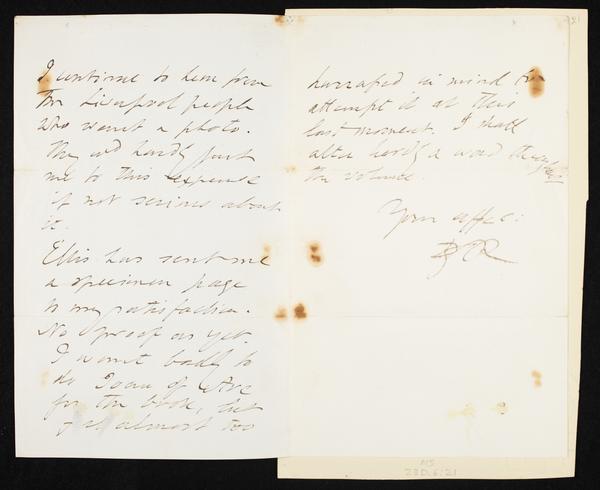 I continue to hear from
the Liverpool people
who want a photo.
They wd hardly put
me to this expense
if not serious about
it.
Ellis has sent me
a specimen page
to my satisfaction.
No proof as yet.
I want badly to
do Joan of Arc
for the book, but
feel almost too
harrassed in mind to
attempt it at this
last moment. I shall
alter hardly a word through
the volume.
Your affec:
DGR
MS
23D.6:21